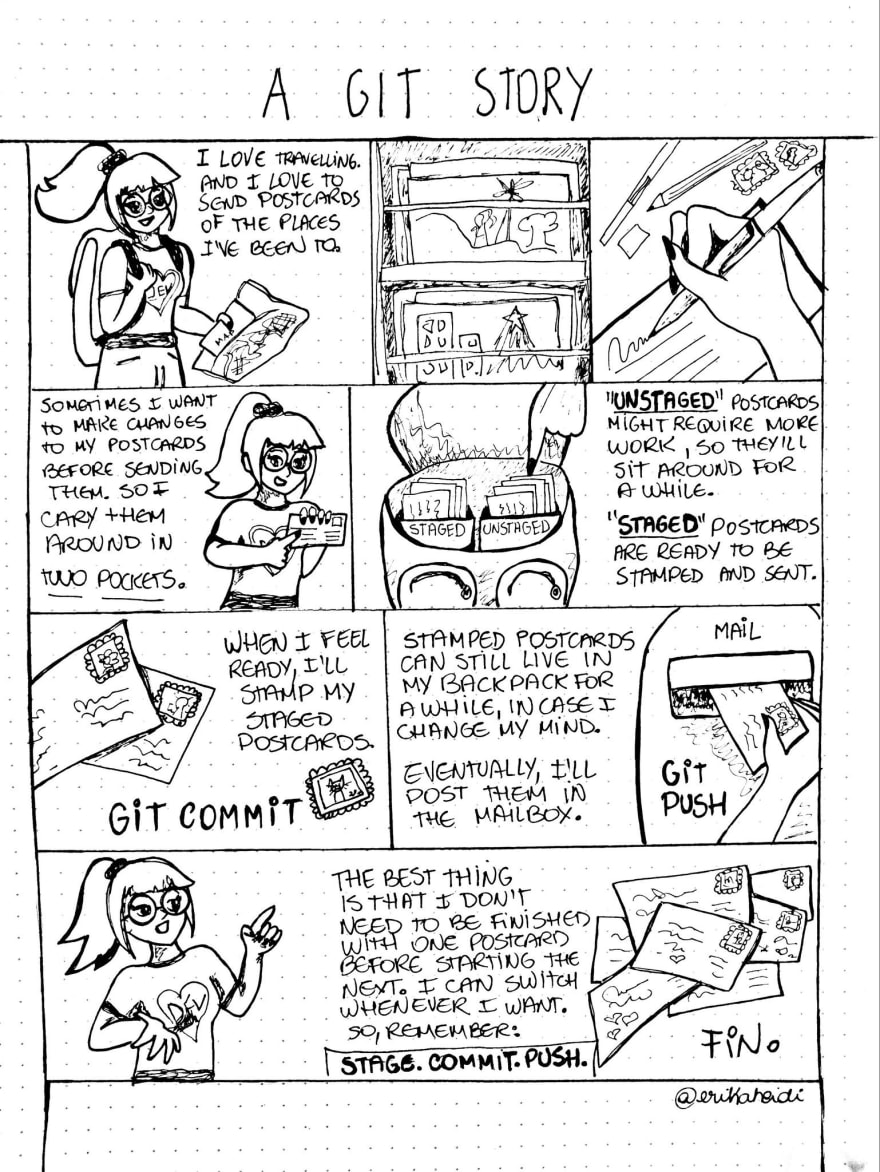 A GIT STORY
I LOVE TRAVELLING.
AND I LOVE TO
SEND POSTCARDS
OF THE PLACES
I'VE BEEN TO.
MAP
SOMETIMES I WANT
TO MAKE CHANGES
TO MY POSTCARDS
BEFORE SENDING
THEM. SO I
CARY THEM
AROUND IN
TWO POCKETS.
STAGED
UNSTAGED
"UNSTAGED" POSTCARDS
MIGHT REQUIRE MORE
WORK, SO THEY'LL
SIT AROUND FOR
A WHILE.
"STAGED" POSTCARDS
ARE READY TO BE
STAMPED AND SENT.
WHEN I FEEL
READY, I'LL
STAMP MY
STAGED
POSTCARDS.
GIT COMMIT
STAMPED POSTCARDS
CAN STILL LIVE IN
MY BACKPACK FOR
A WHILE, IN CASE I
CHANGE MY MIND.
EVENTUALLY, I'LL
POST THEM IN
THE MAILBOX.
MAIL
GIT
PUSH
DEV
THE BEST THING
IS THAT I DON'T
NEED TO BE FINISHED
WITH ONE POSTCARD
BEFORE STARTING THE
NEXT. I CAN SWITCH
WHENEVER I WANT.
SO, REMEMBER:
STAGE. COMMIT. PUSH.
FIN.
@erikaheidi